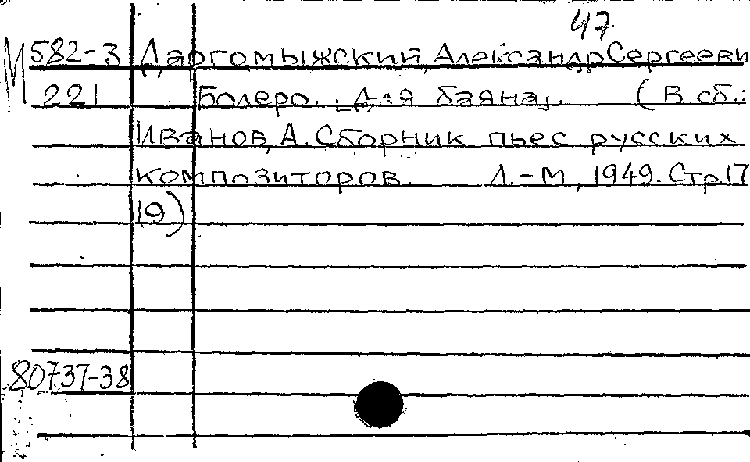 47
М 582-3 Даргомыжский, Александр Сергееви
221 Болеро. [Для баяна]. (В сб.:
Иванов, А. Сборник пьес русских
композиторов. Л.-М., 1949. Стр. 17
19)
80737-38